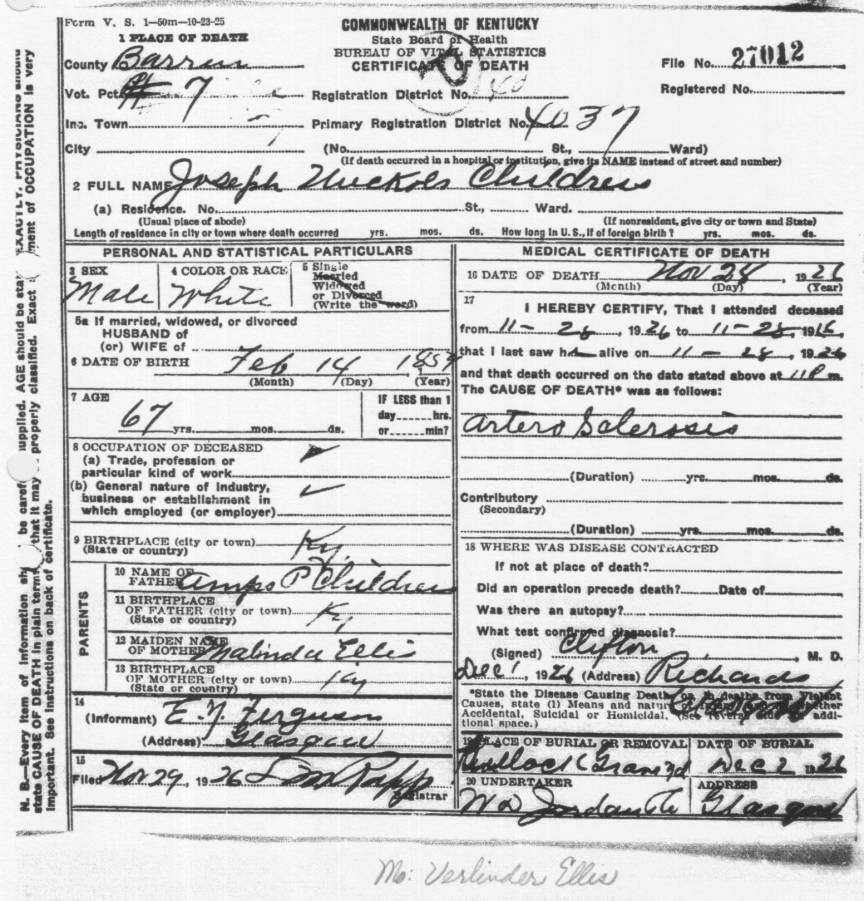 Form V. S. 1—50m—10-23-25
COMMONWEALTH OF KENTUCKY
State Board of Health
BUREAU OF VITAL STATISTICS
CERTIFICATE OF DEATH
1 PLACE OF DEATH
County Barren
File No. 27012
Vot. Pct. # 7
Registration District No. 40
Registered No.
Inc. Town
Primary Registration District No. 4037
City (No. St., Ward)
(If death occurred in a hospital or institution, give its NAME instead of street and number)
2 FULL NAME Joseph Nuckols Childress
(a) Residence. No. St., Ward.
(Usual place of abode) (If nonresident, give city or town and State)
Length of residence in city or town where death occurred yrs. mos. ds. How long in U. S., if of foreign birth? yrs. mos. ds.
PERSONAL AND STATISTICAL PARTICULARS
3 SEX
Male
4 COLOR OR RACE
White
5 Single
Married
Widowed
or Divorced
(Write the word)
5a If married, widowed, or divorced
HUSBAND of
(or) WIFE of
6 DATE OF BIRTH Feb 14
(Month) (Day) (Year)
7 AGE
67 yrs. mos. ds.
IF LESS than 1
day hrs.
or min?
8 OCCUPATION OF DECEASED
(a) Trade, profession or
particular kind of work
(b) General nature of Industry,
business or establishment in
which employed (or employer)
9 BIRTHPLACE (city or town)
(State or country) Ky.
PARENTS
10 NAME OF
FATHER Amps P Childress
11 BIRTHPLACE
OF FATHER (city or town)
(State or country) Ky
12 MAIDEN NAME
OF MOTHER Malinda Ellis
13 BIRTHPLACE
OF MOTHER (city or town)
(State or country) Ky
14
(Informant) E. Y. Ferguson
(Address) Glasgow
15
Filed Nov 29, 1926
Registrar
MEDICAL CERTIFICATE OF DEATH
16 DATE OF DEATH Nov 28 1926
(Month) (Day) (Year)
17
I HEREBY CERTIFY, That I attended deceased
from 11-28, 1926 to 11-28, 19
that I last saw alive on 11-28, 1926
and that death occurred on the date stated above at 11 P m.
The CAUSE OF DEATH* was as follows:
Artero Sclerosis
(Duration) yrs. mos. ds.
Contributory
(Secondary)
(Duration) yrs. mos. ds.
18 WHERE WAS DISEASE CONTRACTED
If not at place of death?
Did an operation precede death? Date of
Was there an autopsy?
What test confirmed diagnosis?
(Signed) Clifton Richards, M. D.
Dec 1, 1926 (Address)
*State the Disease Causing Death or in deaths from Violent
Causes, state (1) Means and nature of whether
Accidental, Suicidal or Homicidal. (See reverse addi-
tional space.)
19 PLACE OF BURIAL OR REMOVAL
DATE OF BURIAL
Dec 2 1926
20 UNDERTAKER
W D Jordan
ADDRESS
Glasgow
N. B.—Every item of information be supplied. AGE should be EXACTLY. PHYSICIANS should
state CAUSE OF DEATH in plain that it may properly classified. Exact of OCCUPATION is very
important. See instructions on back of certificate.
Mo: Verlinder Ellis